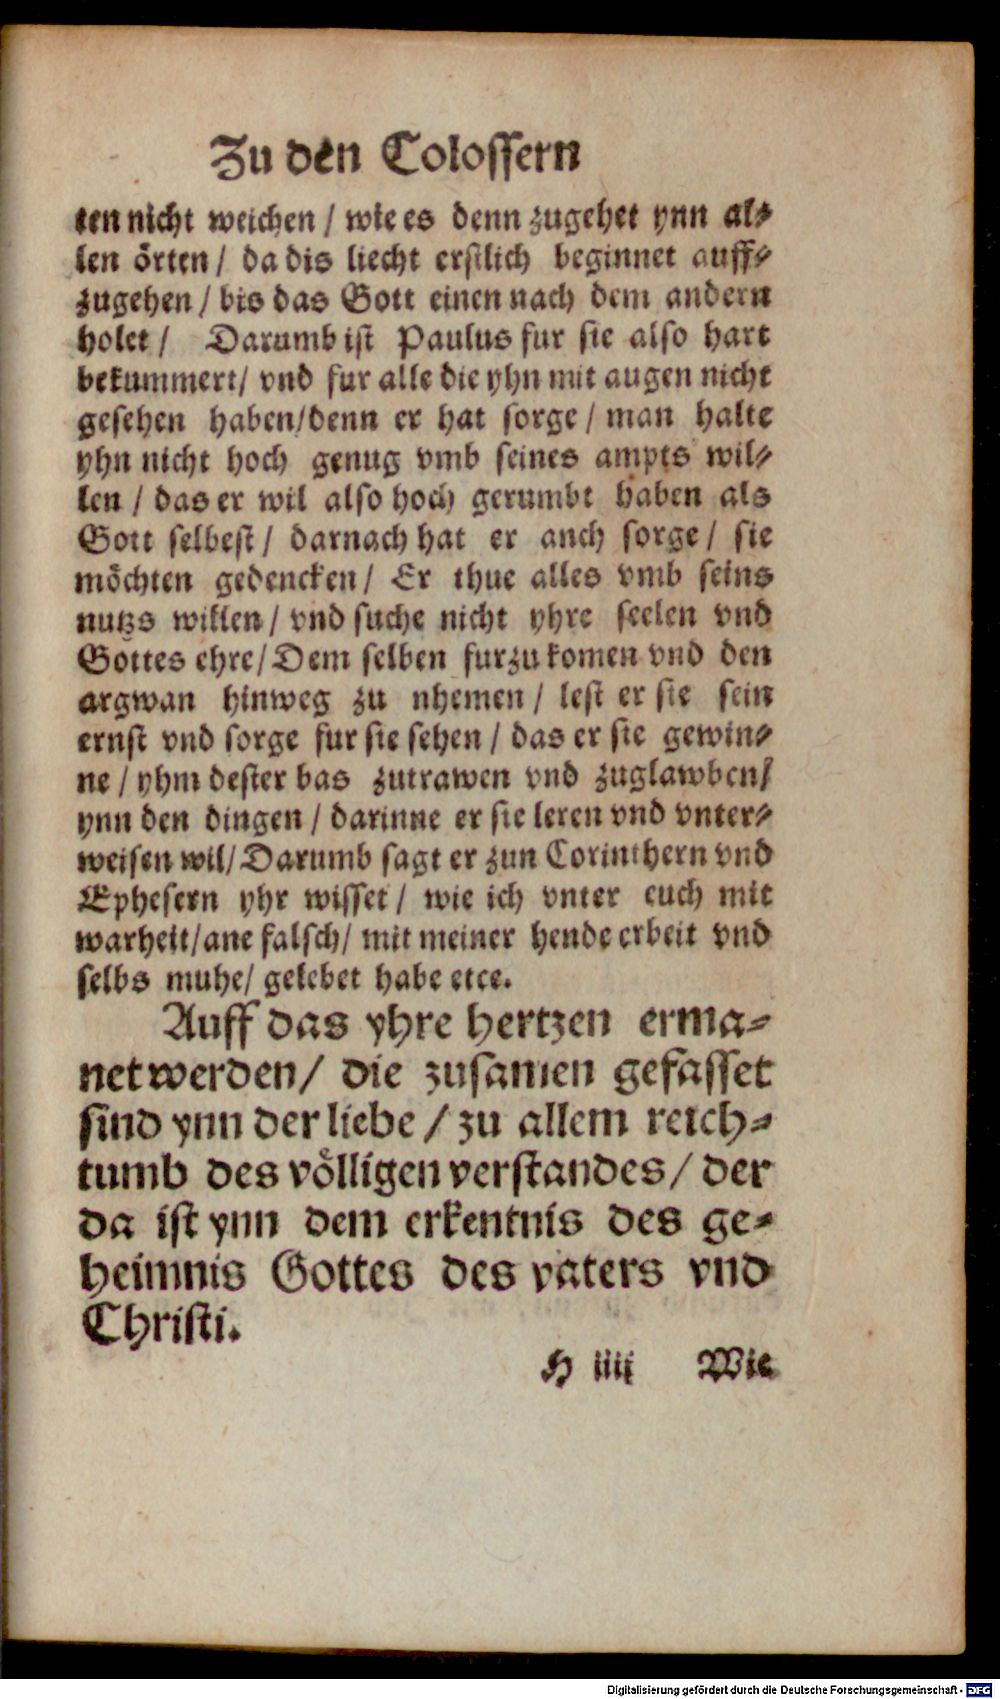 Zu den Colossern
ten nicht weichen / wie es denn zugehet ynn al⸗
len örten / da dis liecht erstlich beginnet auff⸗
zugehen / bis das Gott einen nach dem andern
holet / Darumb ist Paulus fur sie also hart
bekummert / vnd fur alle die yhn mit augen nicht
gesehen haben / denn er hat sorge / man halte
yhn nicht hoch genug vmb seines ampts wil⸗
len / das er wil also hoch gerumbt haben als
Gott selbest / darnach hat er anch sorge / sie
möchten gedencken / Er thue alles vmb seins
nutzs willen / vnd suche nicht yhre seelen vnd
Gottes ehre / Dem selben furzu komen vnd den
argwan hinweg zu nhemen / lest er sie sein
ernst vnd sorge fur sie sehen / das er sie gewin⸗
ne / yhm dester bas zutrawen vnd zuglawben /
ynn den dingen / darinne er sie leren vnd vnter⸗
weisen wil / Darumb sagt er zun Corinthern vnd
Ephesern yhr wisset / wie ich vnter euch mit
warheit / ane falsch / mit meiner hende erbeit vnd
selbs muhe / gelebet habe etce.
Auff das yhre hertzen erma⸗
net werden / die zusamen gefasset
sind ynn der liebe / zu allem reich⸗
tumb des völligen verstandes / der
da ist ynn dem erkentnis des ge⸗
heimnis Gottes des vaters vnd
Christi.
H iiij Wie
Digitalisierung gefördert durch die Deutsche Forschungsgemeinschaft - DFG